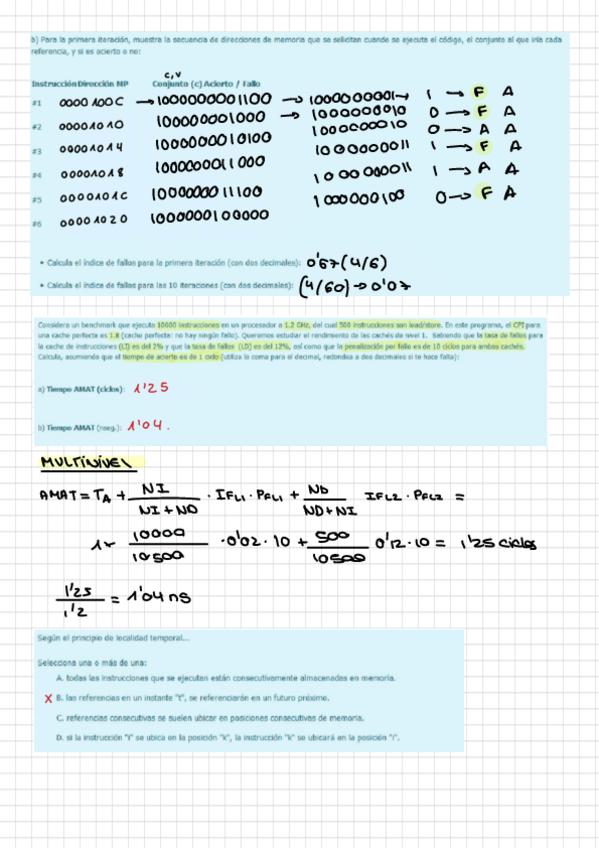 b) Para la primera iteración, muestra la secuencia de direcciones de memoria que se solicitan cuando se ejecuta el código, el conjunto al que iría cada
referencia, y si es acierto o no:
c,v
Instrucción Dirección MP Conjunto (c) Acierto / Fallo
#1 0000 100C → 1000000001100 → 1000000001 → 1 → F A
#2 00001010 1000000001000 → 1000000010 0 → F A
#3 00001014 1000000010100 1000000010 0 → A A
#4 00001018 1000000011000 1000000011 1 → F A
#5 0000101C 1000000011100 1000000011 1 → A A
#6 00001020 1000000100000 1000000100 0 → F A
• Calcula el índice de fallos para la primera iteración (con dos decimales): 0'67 (4/6)
• Calcula el índice de fallos para las 10 iteraciones (con dos decimales): (4/60) → 0'07
Considera un benchmark que ejecuta 10000 instrucciones en un procesador a 1.2 GHz, del cual 500 instrucciones son load/store. En este programa, el CPI para
una cache perfecta es 1.8 (cache perfecta: no hay ningún fallo). Queremos estudiar el rendimiento de las cachés de nivel 1. Sabiendo que la tasa de fallos para
la cache de instrucciones (LI) es del 2% y que la tasa de fallos (LD) es del 12%, así como que la penalización por fallo es de 10 ciclos para ambas cachés.
Calcula, asumiendo que el tiempo de acierto es de 1 ciclo (utiliza la coma para el decimal, redondea a dos decimales si te hace falta):
a) Tiempo AMAT (ciclos): 1'25
b) Tiempo AMAT (nseg.): 1'04.
MULTINIVEL
AMAT = TA + NI / NI + ND · IFL1 · PFL1 + ND / ND + NI IFL2 · PFL2 =
1 + 10000 / 10500 · 0'02 · 10 + 500 / 10500 0'12 · 10 = 1'25 ciclos
1'25 / 1'2 = 1'04 ns
Según el principio de localidad temporal...
Selecciona una o más de una:
A. todas las instrucciones que se ejecutan están consecutivamente almacenadas en memoria.
X B. las referencias en un instante "t", se referenciarán en un futuro próximo.
C. referencias consecutivas se suelen ubicar en posiciones consecutivas de memoria.
D. si la instrucción "i" se ubica en la posición "k", la instrucción "k" se ubicará en la posición "i".